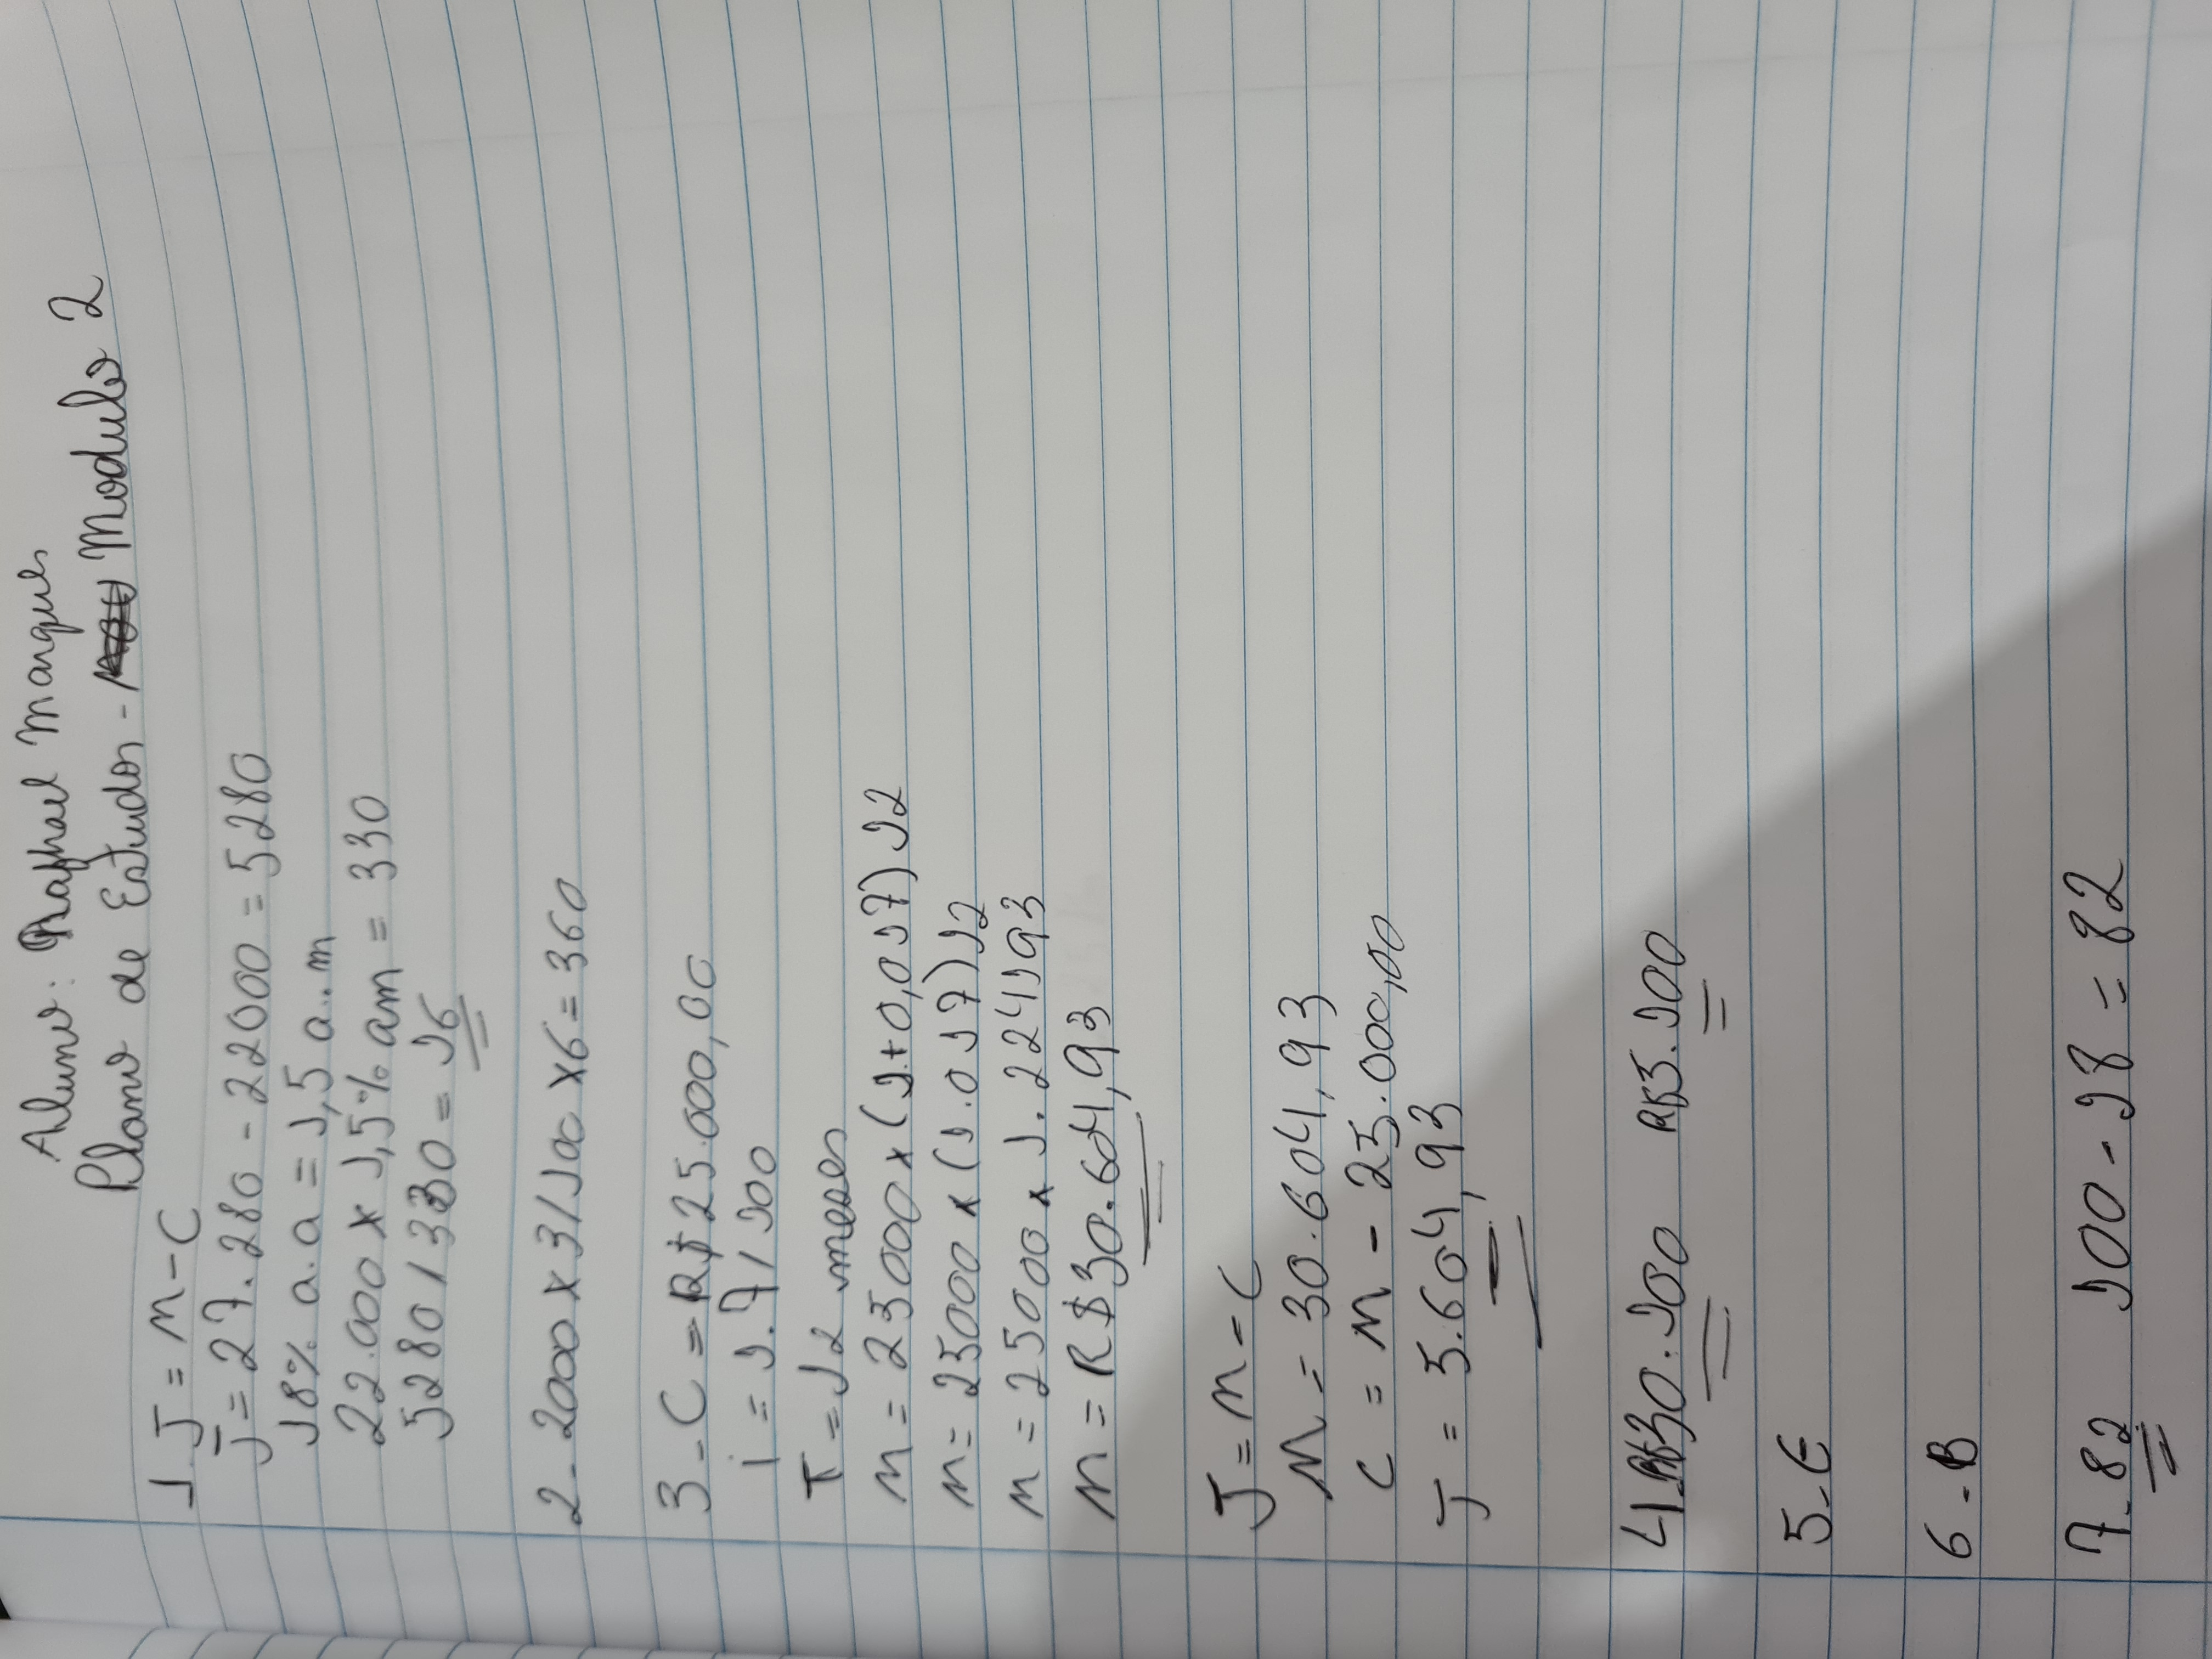 Aluno: Raphael Marques
Plano de Estudos - Modulo 2
1. J = M - C
J = 27.280 - 22000 = 5280
18% a.a = 1,5 a.m
22.000 x 1,5% am = 330
5280 / 330 = 16
2 - 2000 x 3/100 x 6 = 360
3 - C = R$25.000,00
i = 1.7/100
T = 12 meses
M = 25000 x (1+0,017) 12
M = 25000 x (1.017) 12
M = 25000 x 1.224193
M = R$30.604,93
J = M - C
M = 30.604,93
C = M - 25.000,00
J = 5.604,93
4. R$30.100 R$5.100
5 - E
6 - B
7 - 82 100 - 18 = 82